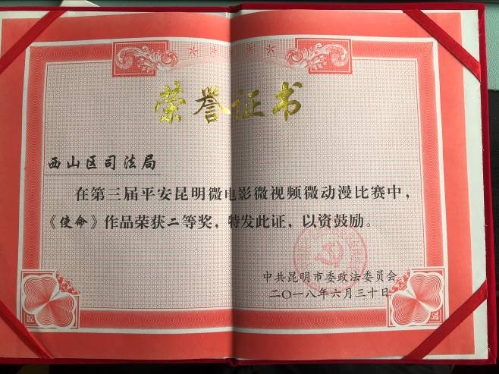 荣誉证书
西山区司法局
在第三届平安昆明微电影微视频微动漫比赛中，
《使命》作品荣获二等奖，特发此证，以资鼓励。
中共昆明市委政法委员会
二〇一八年六月三十日